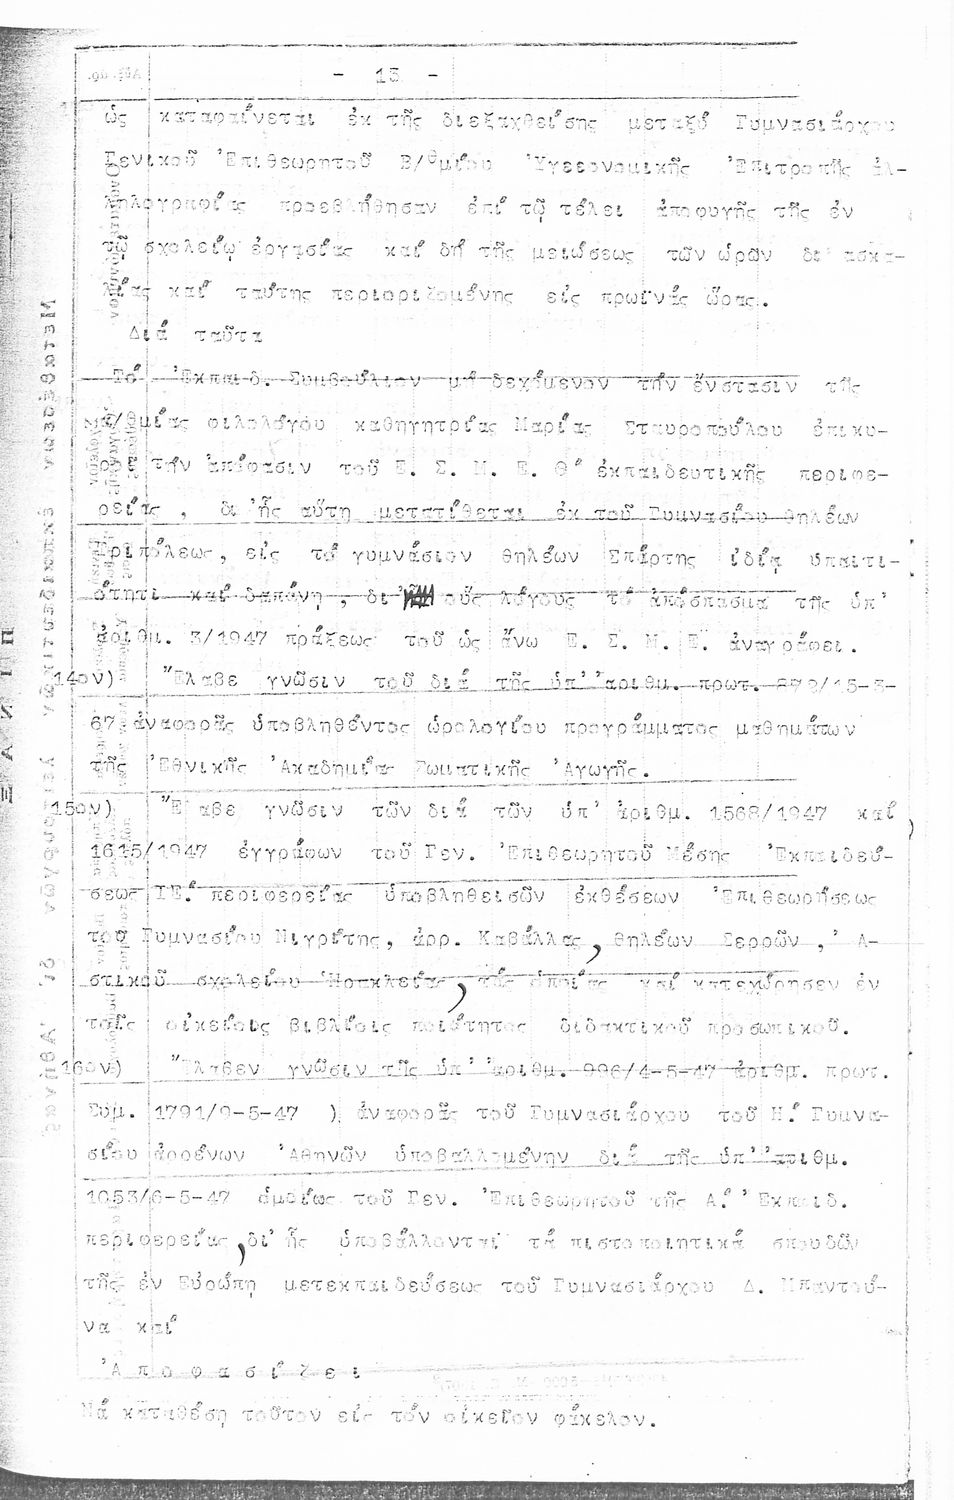 - 13 -
ὡς καταφαίνεται ἐκ τῆς διεξαχθείσης μεταξύ Γυμνασιάρχου
Γενικοῦ Ἐπιθεωρητοῦ Β/θμίου Ὑγειονομικῆς Ἐπιτροπῆς ἀλ-
ληλογραφίας προεβλήθησαν ἐπί τῷ τέλει ἀποφυγῆς τῆς ἐν
τῷ σχολείῳ ἐργασίας καί δή τῆς μειώσεως τῶν ὡρῶν διδασκα-
λίας καί ταύτης περιοριζομένης εἰς πρωϊνάς ὥρας.
Διά ταῦτα
Τό Ἐκπαιδ. Συμβούλιον μή δεχόμενον τήν ἔνστασιν τῆς
α/θμίας φιλολόγου καθηγητρίας Μαρίας Σταυροπούλου ἐπικυ-
ροῖ τήν ἀπόφασιν τοῦ Ε. Σ. Μ. Ε. Θ΄ ἐκπαιδευτικῆς περιφε-
ρείας, δι' ἧς αὕτη μετατίθεται ἐκ τοῦ Γυμνασίου θηλέων
Τριπόλεως, εἰς τό γυμνάσιον θηλέων Σπάρτης ἰδίᾳ ὑπαιτι-
ότητι καί δαπάνῃ, δι' οὕς λόγους τό ἀπόσπασμα τῆς ὑπ'
ἀριθμ. 3/1947 πράξεως τοῦ ὡς ἄνω Ε. Σ. Μ. Ε. ἀναγράφει.
14ον) Ἔλαβε γνῶσιν τοῦ διά τῆς ὑπ' ἀριθμ. πρωτ. 879/15-3-
67 ἀναφορᾶς ὑποβληθέντος ὡρολογίου προγράμματος μαθημάτων
τῆς Ἐθνικῆς Ἀκαδημίας Σωματικῆς Ἀγωγῆς.
15ον) Ἔλαβε γνῶσιν τῶν διά τῶν ὑπ' ἀριθμ. 1568/1947 καί
1615/1947 ἐγγράφων τοῦ Γεν. Ἐπιθεωρητοῦ Μέσης Ἐκπαιδεύ-
σεως ΙΕ΄ περιφερείας ὑποβληθεισῶν ἐκθέσεων Ἐπιθεωρήσεως
τοῦ Γυμνασίου Νιγρίτης, ἀρρ. Καβάλλας, θηλέων Σερρῶν, Ἀ-
στικοῦ σχολείου Ἡρακλείας, τάς ὁποίας καί κατεχώρησεν ἐν
τοῖς οἰκείοις βιβλίοις ποιότητος διδακτικοῦ προσωπικοῦ.
16ον) Ἔλαβεν γνῶσιν τῆς ὑπ' ἀριθμ. 996/4-5-47 ἀριθμ. πρωτ.
Συμ. 1791/9-5-47 ) ἀναφορᾶς τοῦ Γυμνασιάρχου τοῦ Η΄ Γυμνα-
σίου ἀρρένων Ἀθηνῶν ὑποβαλλομένην διά τῆς ὑπ' ἀριθμ.
1053/6-5-47 ὁμοίως τοῦ Γεν. Ἐπιθεωρητοῦ τῆς Α΄ Ἐκπαιδ.
περιφερείας, δι' ἧς ὑποβάλλονται τά πιστοποιητικά σπουδῶν
τῆς ἐν Εὐρώπῃ μετεκπαιδεύσεως τοῦ Γυμνασιάρχου Δ. Μπαντού-
να καί
Ἀ π ο φ α σ ί ζ ε ι
Νά καταθέσῃ τοῦτον εἰς τόν οἰκεῖον φάκελον.